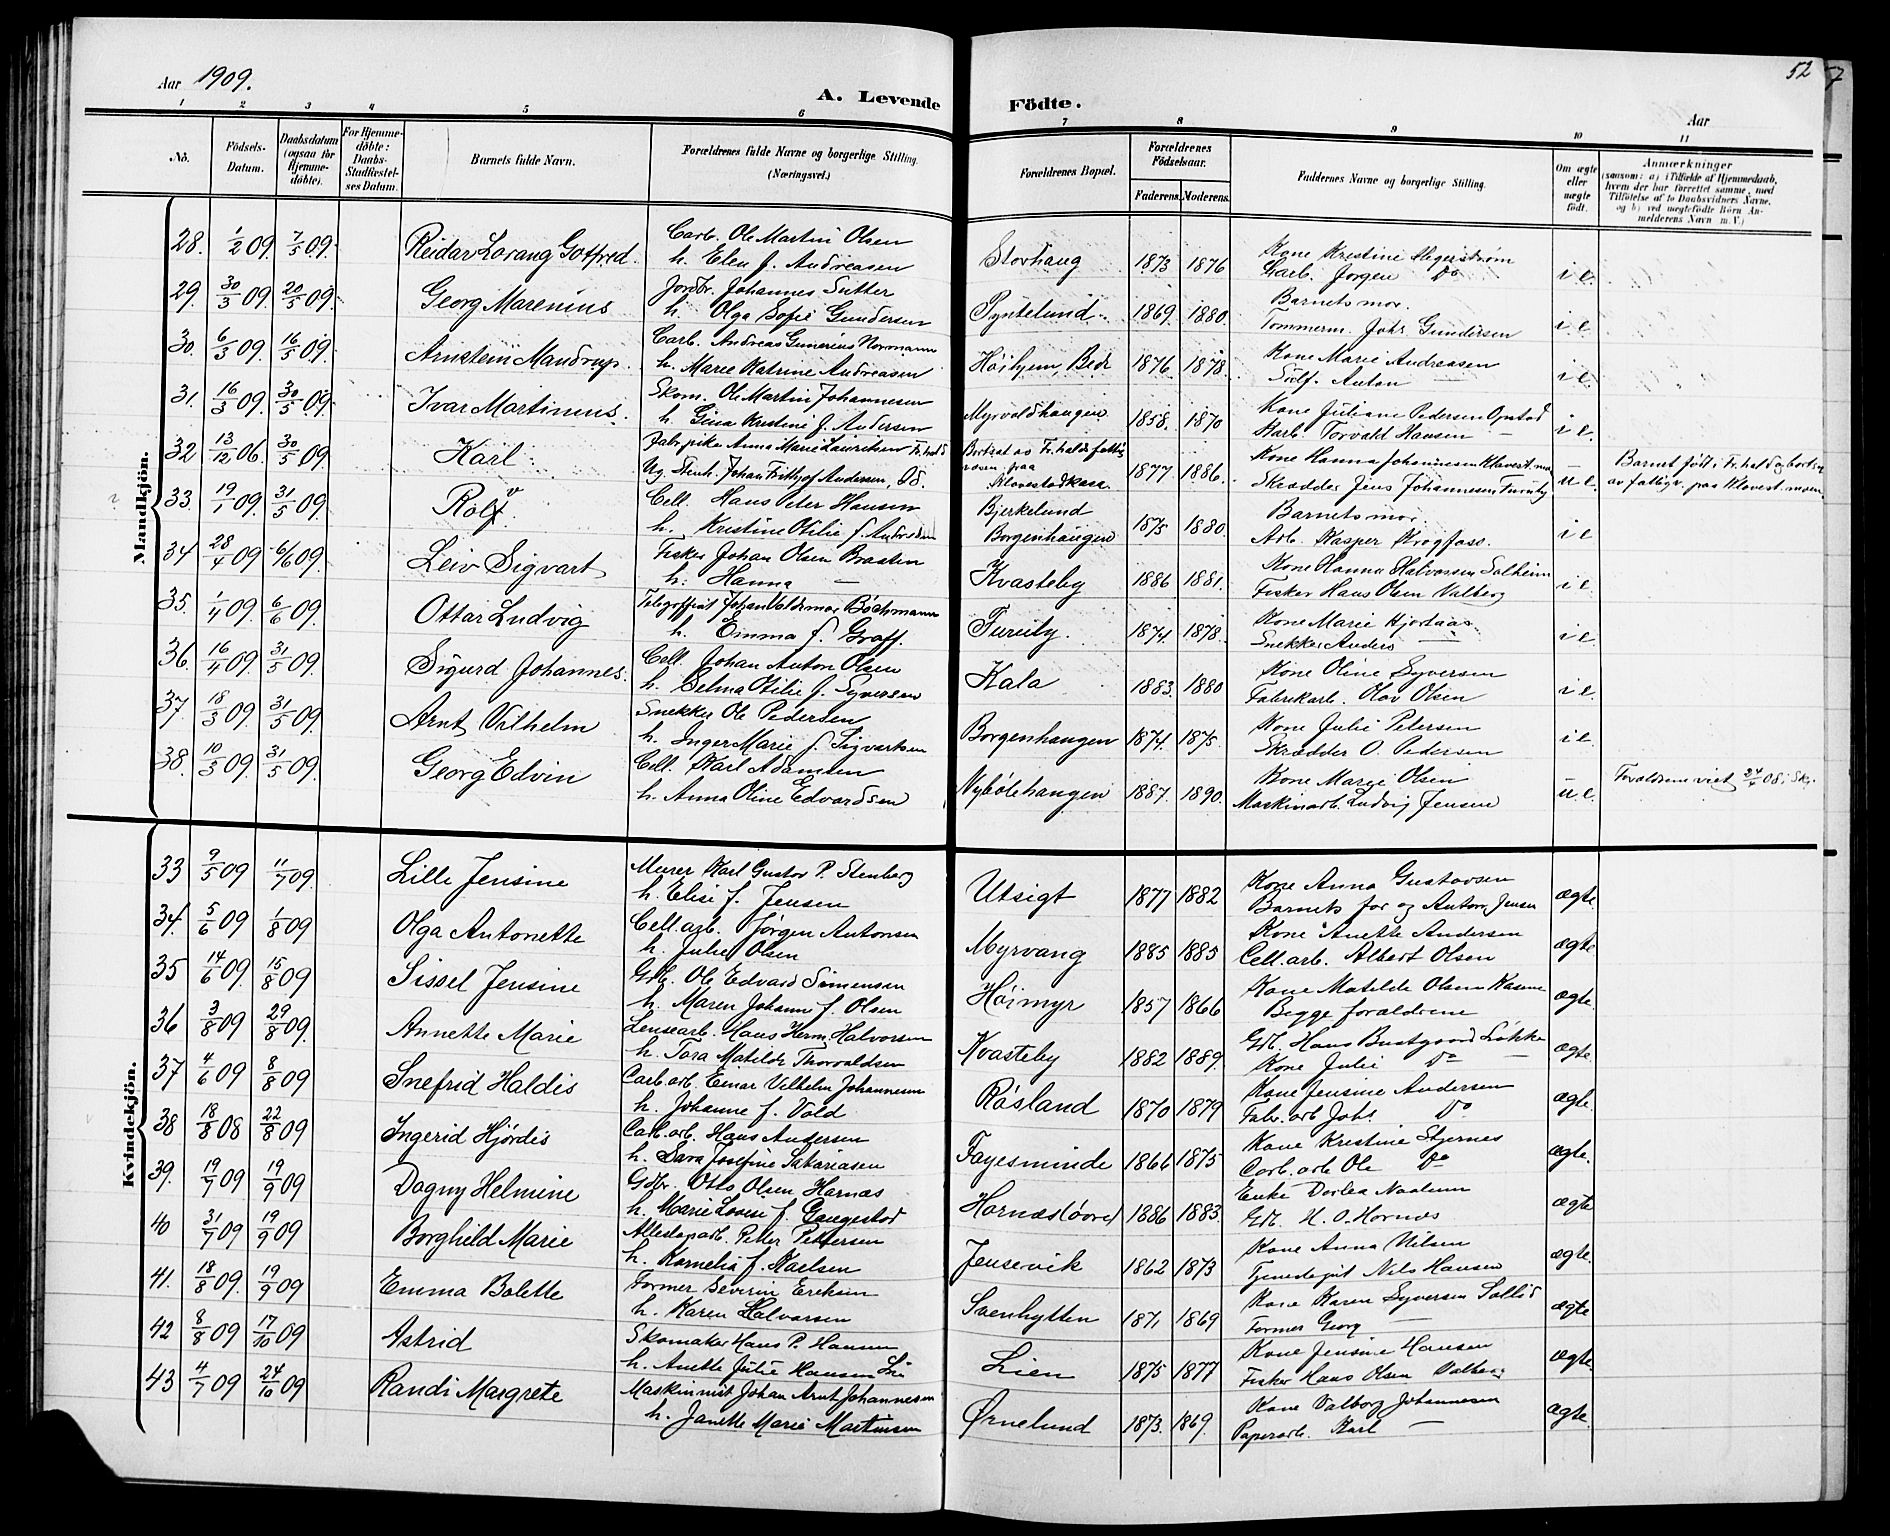 52
7
Aar 1909.
A. Levende Födte.
Aar
1 2 3 4 5 6 7 8 9 10 11
No.
Födsels-Datum.
Daabsdatum (ogsaa for Hjemme-döbte).
For Hjemme-döbte: Daabs-Stadfæstel-ses Datum.
Barnets fulde Navn.
Forældrenes fulde Navne og borgerlige Stilling. (Næringsvei.)
Forældrenes Bopæl.
Forældrenes Födselsaar.
Faderens.
Moderens.
Faddernes Navne og borgerlige Stilling.
Om ægte eller uægte födt.
Anmærkninger
(saasom: a) i Tilfælde af Hjemmedaab, hvem der har forrettet samme, med Tilföielse af to Daabsvidners Navne, og b) ved uægtefödte Börn An-melderens Navn m. V.)
Mandkjön.
28. 1/2 09. 7/5 09. Reidar Lorang Gotfred. Carb. Ole Martin Olsen Storhaug 1873 1876 Kone Kristine Hegerström i e.
h. Elen f. Andreasen Garb. Jörgen Do
29. 30/3 09. 20/5 09. Georg Marenius Jordbr. Johannes Sutter Pyntelund. 1869. 1880. Barnets mor. i e.
h. Olga Sofie Gundersen Tommerm. Johs. Gundersen
30. 6/3 09. 16/5 09. Arnstein Mandrup. Carb. Andreas Gunerius Normann Höihjem, Bedr 1876 1878. Kone Marie Andreasen i e.
h. Marie Katrine Andreasen Sölf. Anton —
31. 16/3 09. 30/5 09. Ivar Martinius. Skom. Ole Martin Johannesen Myrvoldhaugen. 1858. 1870 Kone Juliane Pedersen Opstad i e.
h. Gina Kristine f. Andersen Karb. Torvald Hansen —
32 13/12 06. 30/5 09 Karl Fabrpike Anna Marie Lauritsen Fr.hald Bortsat av Fr.halds fattig 1877 1886. Kone Hanna Johannesen Klavest.moen u e. Barnet födt i Fr.hald og bortsa
Ug. Stenh. Johan Fritjof Andersen, Od. paa Klavestadkasa Skrædder Jens Johannesen Furuly av fattigv. paa Klavest.moen
33. 19/1 09. 31/5 09 Rolf. v Cell. Hans Peter Hansen Bjerkelund 1875 1880. Barnets mor. i e
h. Kristine Otilie f. Andresen Borgenhaugen Arb. Kasper Krogfoss.
34 28/4 09 6/6 09. Leiv Sigvart Fisker Johan Olsen Braaten Kvasteby 1886 1881. Kone Hanna Halvorsen Solheim i e.
h. Hanna — Fisker Hans Olsen Valberg
35. 1/4 09. 6/6 09. Ottar Ludvig Telegrafist Johan Valdemar Böchmann Furuly. 1874. 1878. Kone Marie Hjortaas i e
h. Emma f. Graff. Snekker Anders —
36. 16/4 09. 31/5 09. Sigurd Johannes. Cell. Johan Anton Olsen Kala 1883. 1880 Kone Oline Syversen i e.
h. Selma Otilie f. Syversen Fabrikarb. Olav Olsen
37. 18/3 09. 31/5 09. Arnt Vilhelm Snekker Ole Pedersen Borgenhaugen 1874. 1875. Kone Julie Petersen i e.
h. Inger Marie f. Sigvartsen Skrædder O. Pedersen
38. 10/3 09. 31/5 09. Georg Edvin Cell. Karl Adamsen Nybölehaugen 1887. 1890. Kone Margi Olsen u e. Forældrene viet 24/4 08 i Skj.
h. Anna Oline Edvardsen Maskinarb. Ludvig Jensen
Kvindekjön.
33 9/5 09 11/7 09. Lilli Jensine Murer Karl Gustav P. Stenberg Utsigt 1877 1882 Kone Anna Gustavsen ægte.
h. Elise f. Jensen Barnets far og Anton Jensen
34. 5/6 09 1/8 09 Olga Antonette Cell.arb. Jörgen Antonsen Myrvang 1885 1885 Kone Anette Andersen ægte.
h. Julie Olsen Cell.arb. Albert Olsen
35 14/6 09. 15/8 09 Sissel Jensine Gdb. Ole Edvard Simensen Höimyr 1857 1866 Kone Matilde Olsen Kasene ægte
h. Maren Johanne f. Olsen Begge forældrene
36 3/8 09 29/8 09. Annette Marie Lensearb. Hans Herm. Halvorsen Kvasteby 1882 1889. Gdb. Hans Bustgaard Lökke ægte.
h. Tora Matilde Thorvaldsen Kone Julie Do —
37 4/6 09 8/8 09 Snefrid Haldis Carb.arb. Einar Vilhelm Johannesen Rösland 1870 1879 Kone Jensine Andersen ægte.
h. Johanne f. Vold Fabr.arb Johs. Do
38 18/8 08 22/8 09 Ingerid Hjördis Carb.arb. Hans Andersen Fagesminde 1866 1875 Kone Kristine Stjernes ægte.
h. Sara Josefine Sakariasen Carb.arb Ole Do
39. 19/7 09 19/9 09 Dagny Helmine Gdbr. Otto Olsen Hornæs Hornæslöored 1886 1883. Enke Dorlea Naalum ægte
h. Marie Lovise f. Gaugestad Gdb. H. O. Hornæs
40 31/7 09 19/9 09 Borghild Marie Petter Pettersen Jensevik 1862 1873 Kone Anna Nilsen ægte.
h. Kornelia f. Karlsen Tjenestegut Nils Hansen
41. 18/8 09. 19/9 09 Emma Bolette Former Severin Eriksen Svenhytten 1871 1869 Kone Karen Syversen Sollid ægte
h. Karen Halvorsen Former Georg —
42 8/8 09 17/10 09 Astrid Skomaker Hans P. Hansen Lien 1875 1877 Kone Jensine Hansen ægte
h. Anette Julie Hansen Lie Fisker Hans Olsen Valberg
43 4/7 09 24/10 09 Randi Margrete Maskinmit Johan Arnt Johannesen Ørnelund 1873. 1869. Kone Valborg Johannesen ægte.
h. Janette Marie Martinsen Papirarb. Karl —